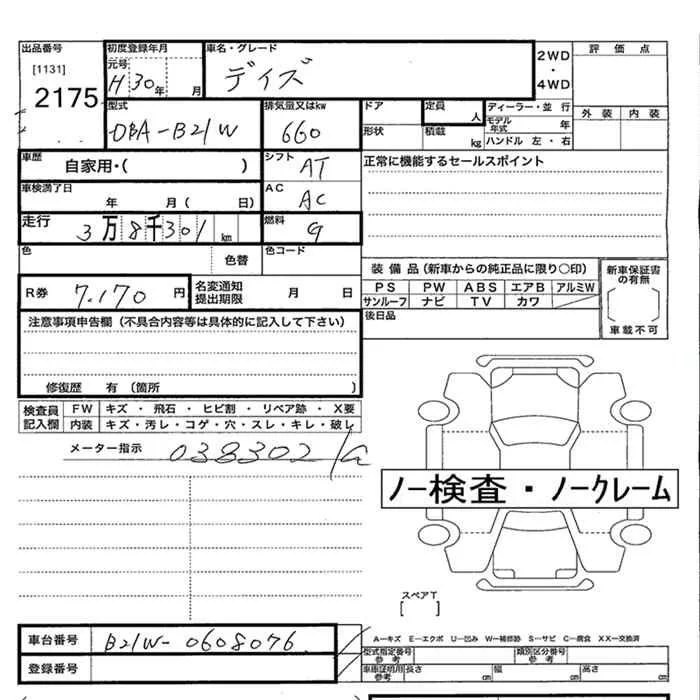 出品番号 初度登録年月 車名・グレード 2WD・4WD 評価点
[1131] 元号 デイズ
2175 H30年 月
型式 排気量又はkw ドア 定員 人 ディーラー・並 行 外装 内装
DBA-B21W 660 形状 積載 kg モデル年式 年
ハンドル 左・右
車歴 自家用・( ) シフト AT 正常に機能するセールスポイント
車検満了日 年 月( 日) AC AC
走行 3万8千301km 燃料 G
色 色替 色コード
装備品(新車からの純正品に限り○印) 新車保証書の有無
R券 7,170円 名変通知提出期限 月 日 PS PW ABS エアB アルミW
サンルーフ ナビ TV カワ
注意事項申告欄(不具合内容等は具体的に記入して下さい) 後日品 車載不可
修復歴 有(箇所 )
検査員記入欄 FW キズ・飛石・ヒビ割・リペア跡・X要
内装 キズ・汚レ・コゲ・穴・スレ・キレ・破レ
メーター指示 038302
ノー検査・ノークレーム
スペアT
[ ]
車台番号 B21W-0608076 A−キズ E−エクボ U−凹み W−補修跡 S−サビ C−腐食 XX−交換済
型式指定番号 参考 類別区分番号 参考
登録番号 車庫証明用参考 長さ cm 幅 cm 高さ cm